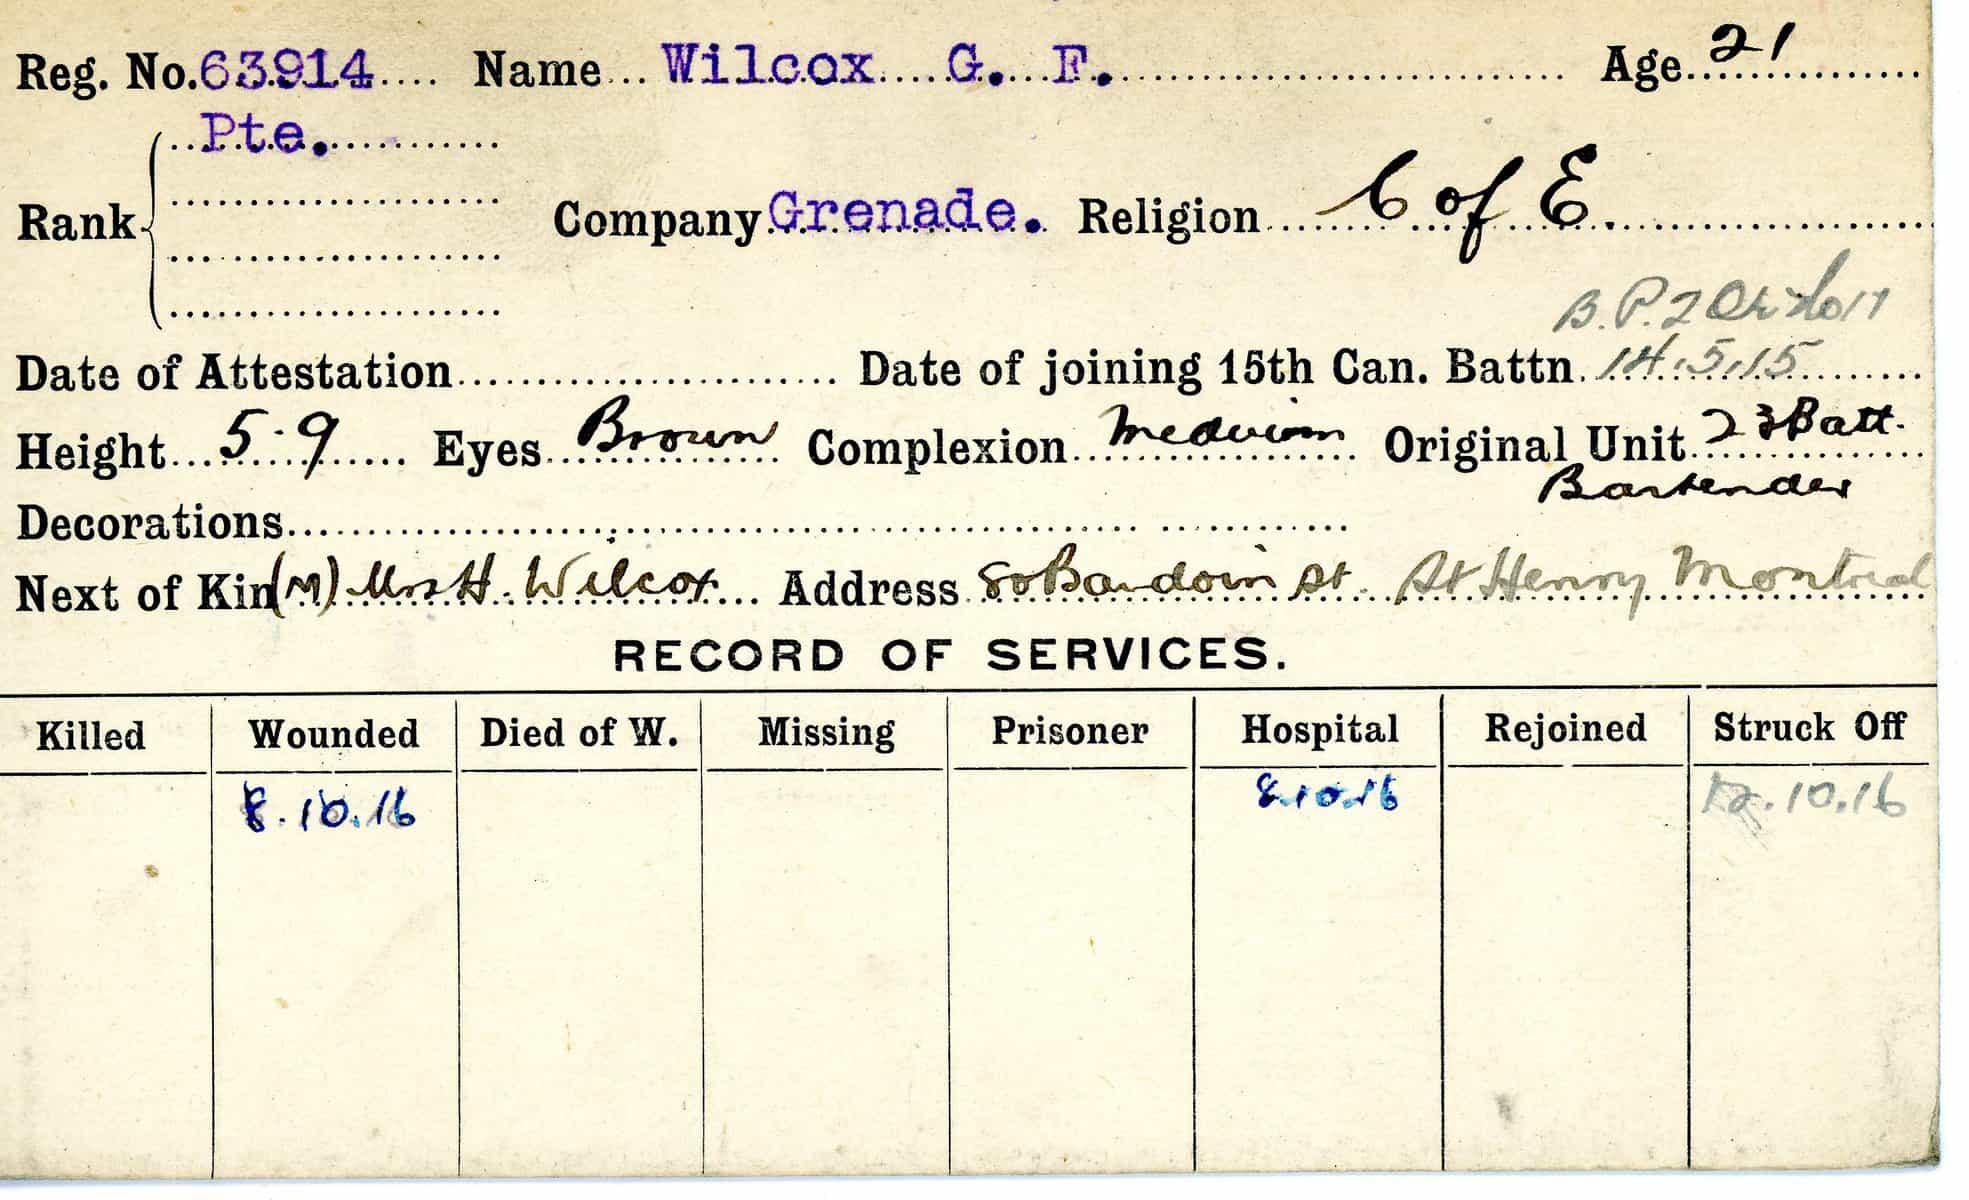 Reg. No. 63914 Name Wilcox G. F. Age 21
Pte.
Rank Company Grenade. Religion C of E.
B.P. 2
Date of Attestation Date of joining 15th Can. Battn. 14.5.15
Height 5·9 Eyes Brown Complexion Medium Original Unit 23 Batt.
Bartender
Decorations
Next of Kin (M) Mrs H. Wilcox Address 80 Baudoin St. St Henry Montreal
RECORD OF SERVICES.
Killed Wounded Died of W. Missing Prisoner Hospital Rejoined Struck Off
8.10.16 8.10.16 12.10.16